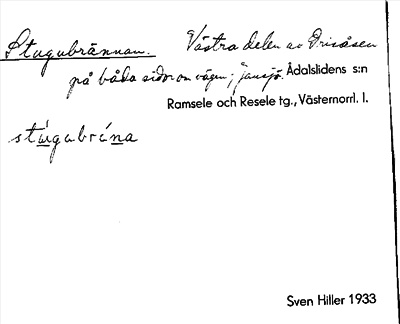 Stugubrännan. Västra delen av Orisåsen
på båda sidor om vägen; Jansjö. Ådalslidens s:n
Ramsele och Resele tg., Västernorrl. l.
stúgubrína
Sven Hiller 1933